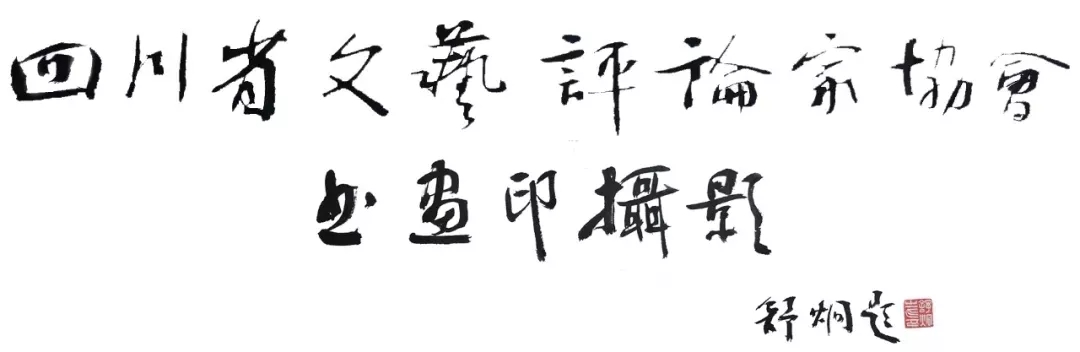 四川省文藝評論家協會
书畫印攝影
舒炯題